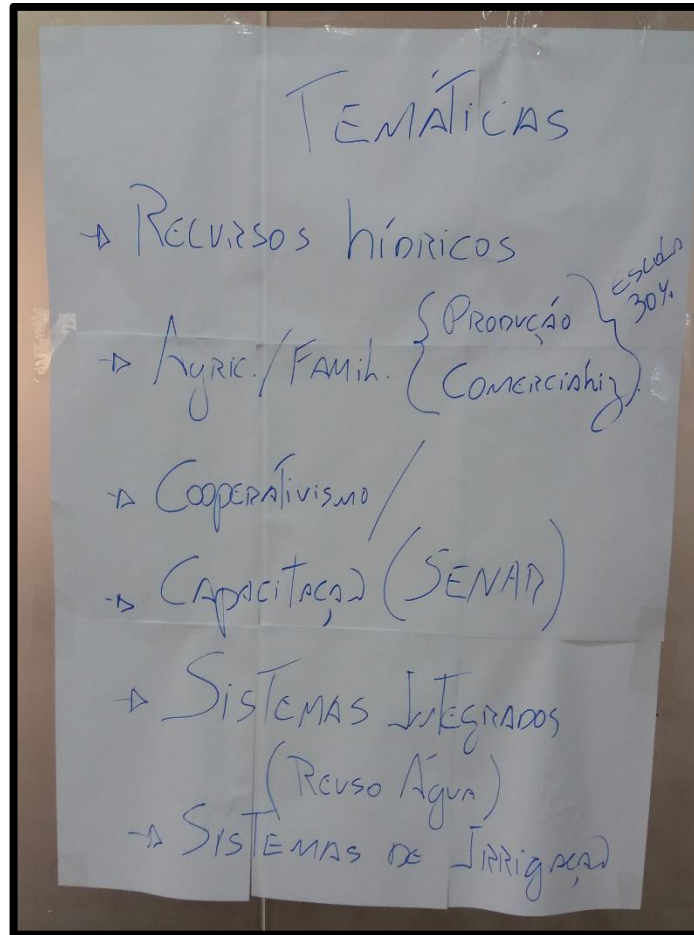 TEMÁTICAS
→ RECURSOS hÍDRICOS
→ AgRIC./FAMiL. { PRODUÇÃO } ESCOLA 30%
COMERCIALiz.
→ COOPERATIVISMO /
→ CAPACITAÇÃO (SENAR)
→ SISTEMAS INTEGRADOS
(REUSO ÁgUA)
→ SISTEMAS DE IRRIgAÇÃO